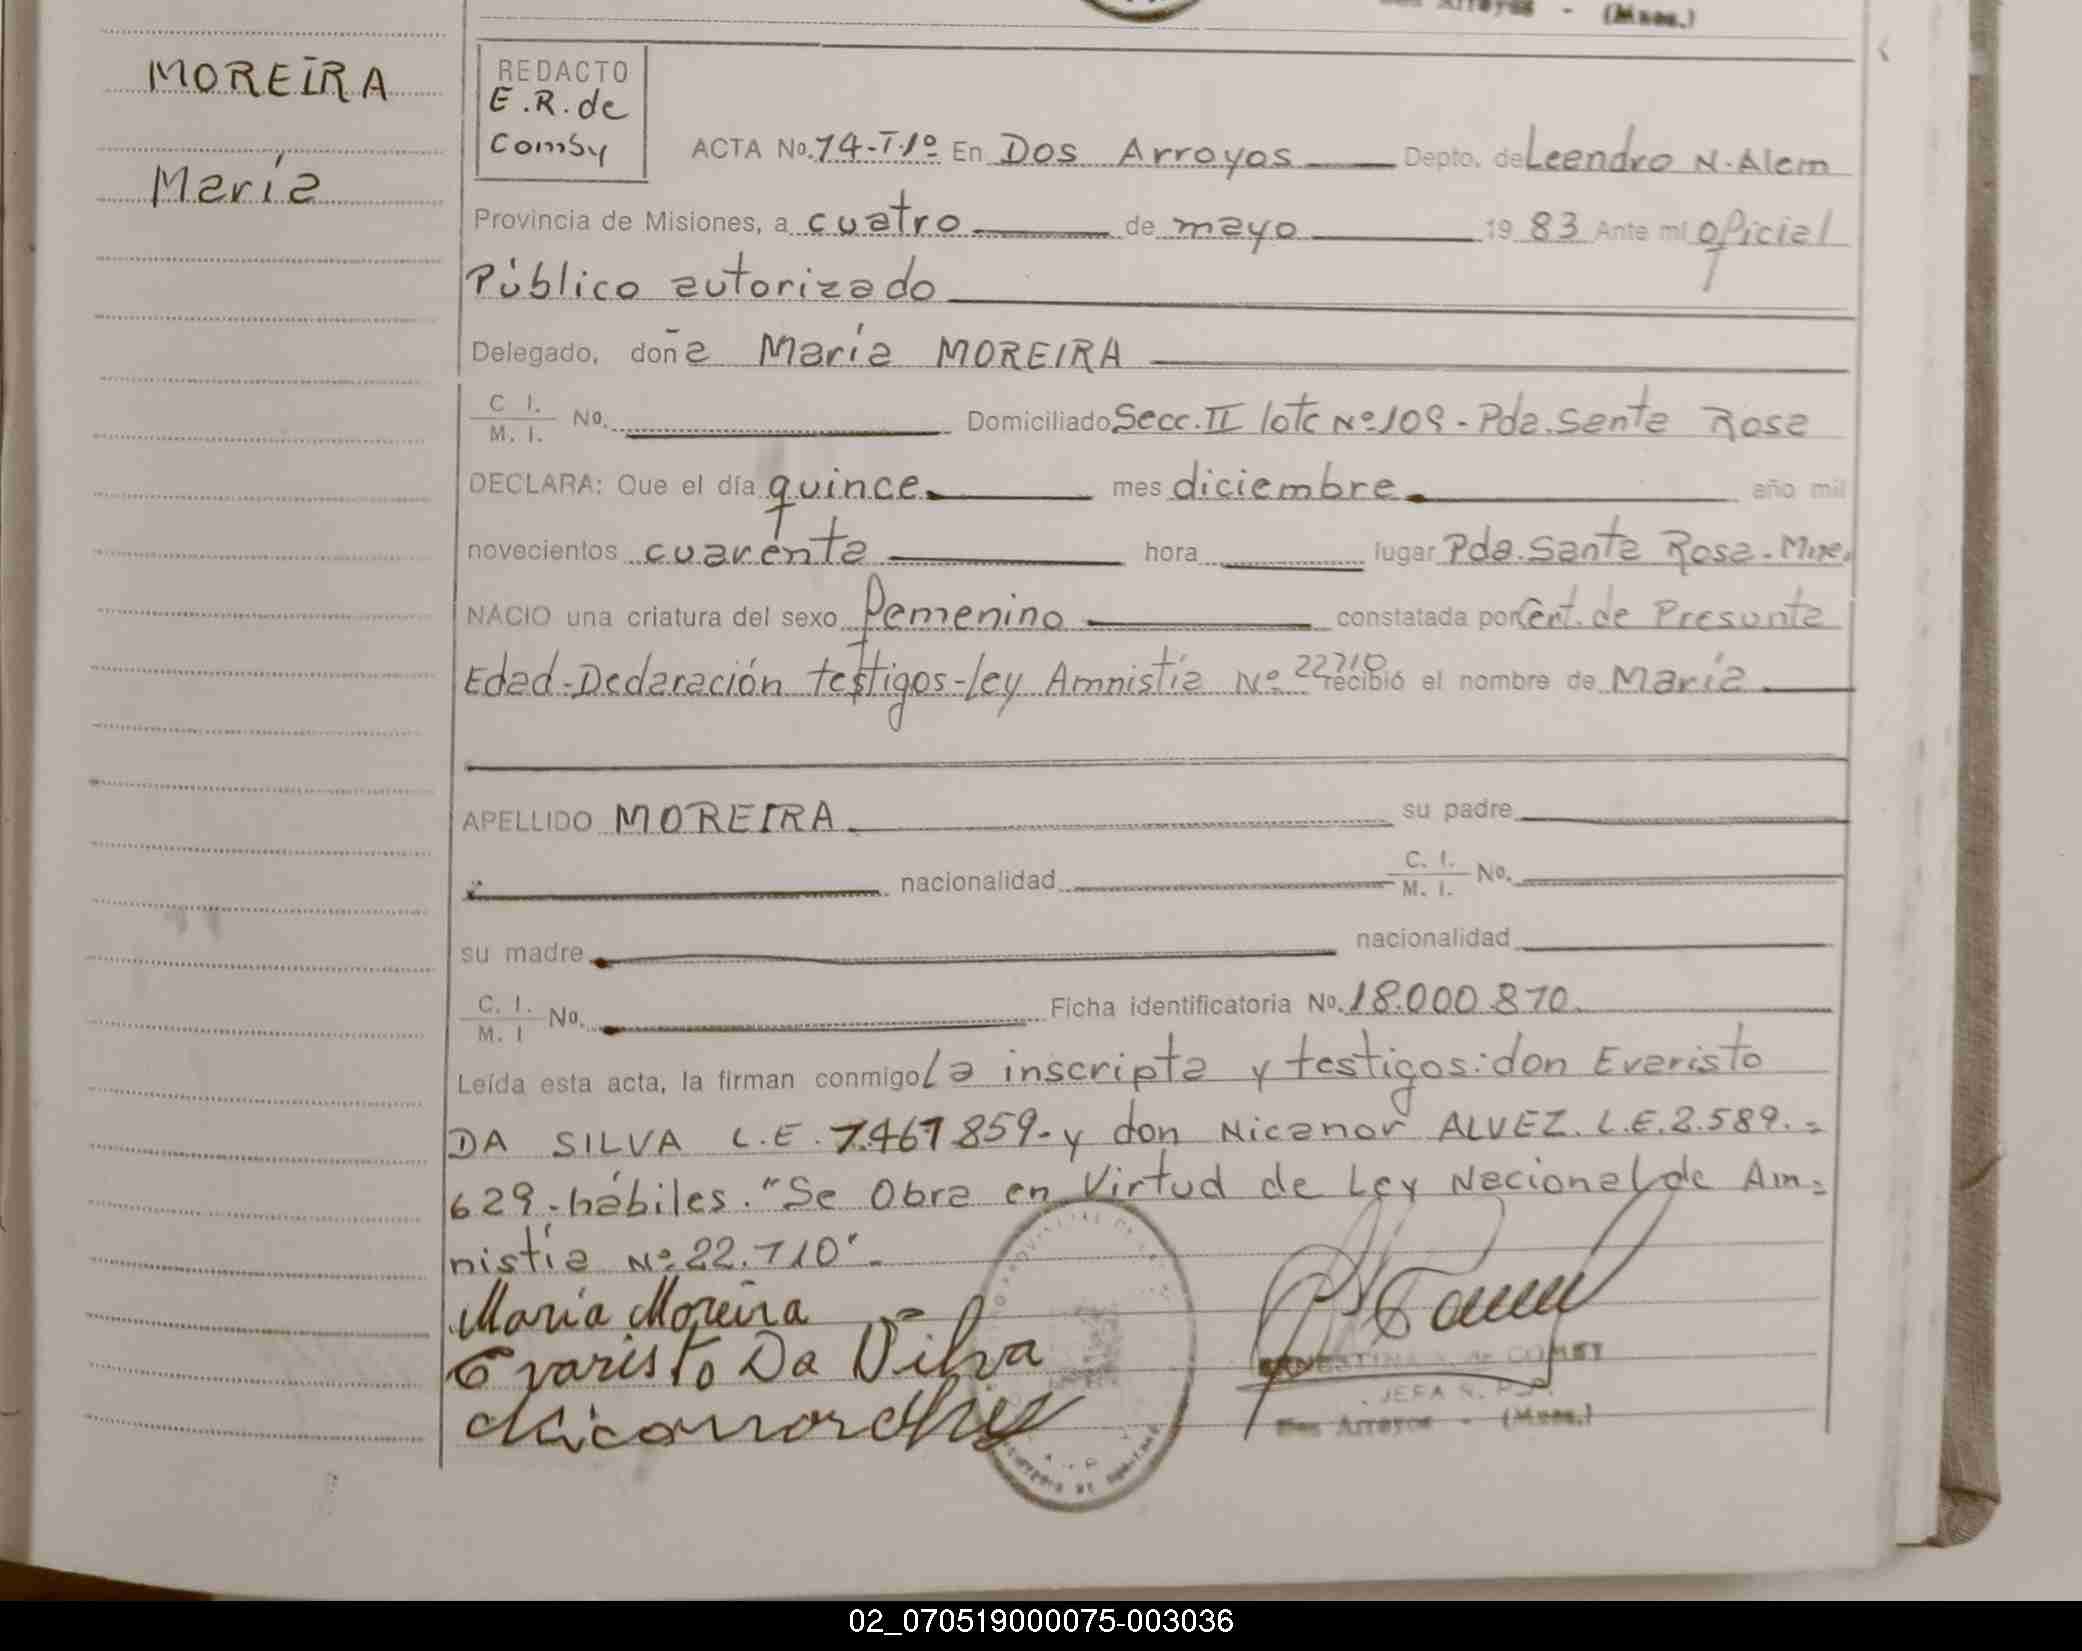 MOREIRA
María
REDACTO
E.R. de
Comsy
ACTA No. 74-Tº1º En Dos Arroyos Depto. de Leandro N. Alem
Provincia de Misiones, a cuatro de mayo 19 83 Ante mi oficial
Público autorizado
Delegado, doña María MOREIRA
C. I. / M. I. No. Domiciliado Secc. II lote Nº 109 - Pda. Santa Rosa
DECLARA: Que el día quince mes diciembre año mil
novecientos cuarenta hora lugar Pda. Santa Rosa - Mnes.
NACIO una criatura del sexo femenino constatada por Cert. de Presunta
Edad - Declaración testigos - Ley Amnistía Nº 22710 recibió el nombre de María
APELLIDO MOREIRA su padre
nacionalidad C. I. / M. I. No.
su madre nacionalidad
C. I. / M. I No. Ficha identificatoria No. 18.000.870
Leída esta acta, la firman conmigo La inscripta y testigos: don Evaristo
DA SILVA L.E. 7.467.859 - y don Nicanor ALVEZ. L.E. 2.589.=
629 - hábiles. "Se Obra en Virtud de Ley Nacional de Am=
nistía Nº 22.710".-
María Moreira
Evaristo Da Silva
JEFA
Dos Arroyos - (Mnes.)
02_070519000075-003036